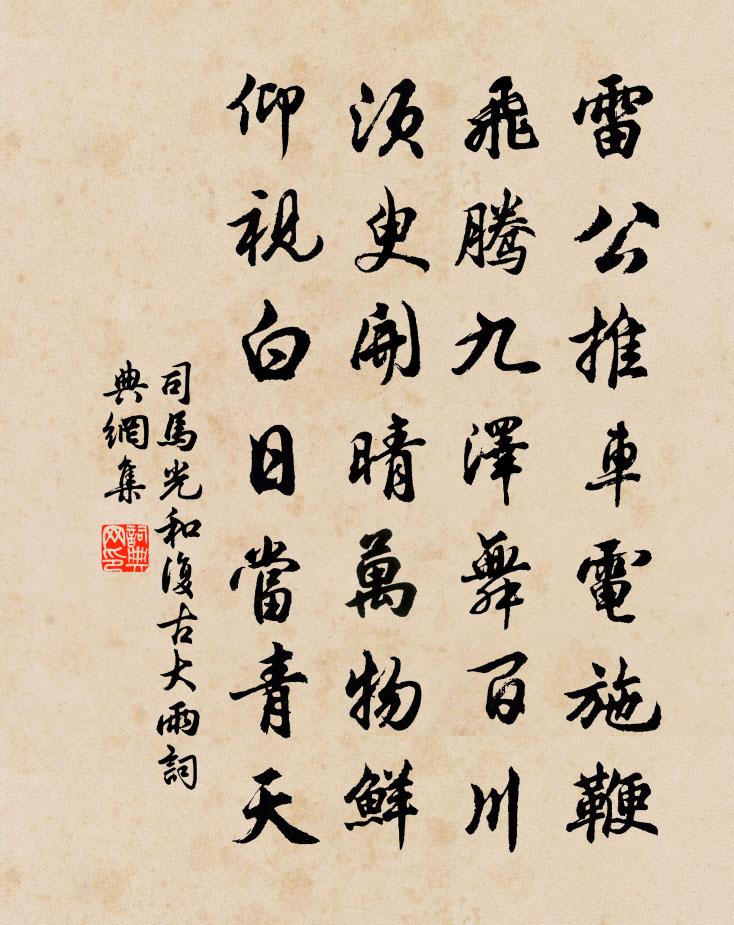 雷公推車電施鞭
飛騰九澤舞百川
須臾開晴萬物鮮
仰視白日當青天
司馬光和復古大雨詞
典網集
詞典
网印